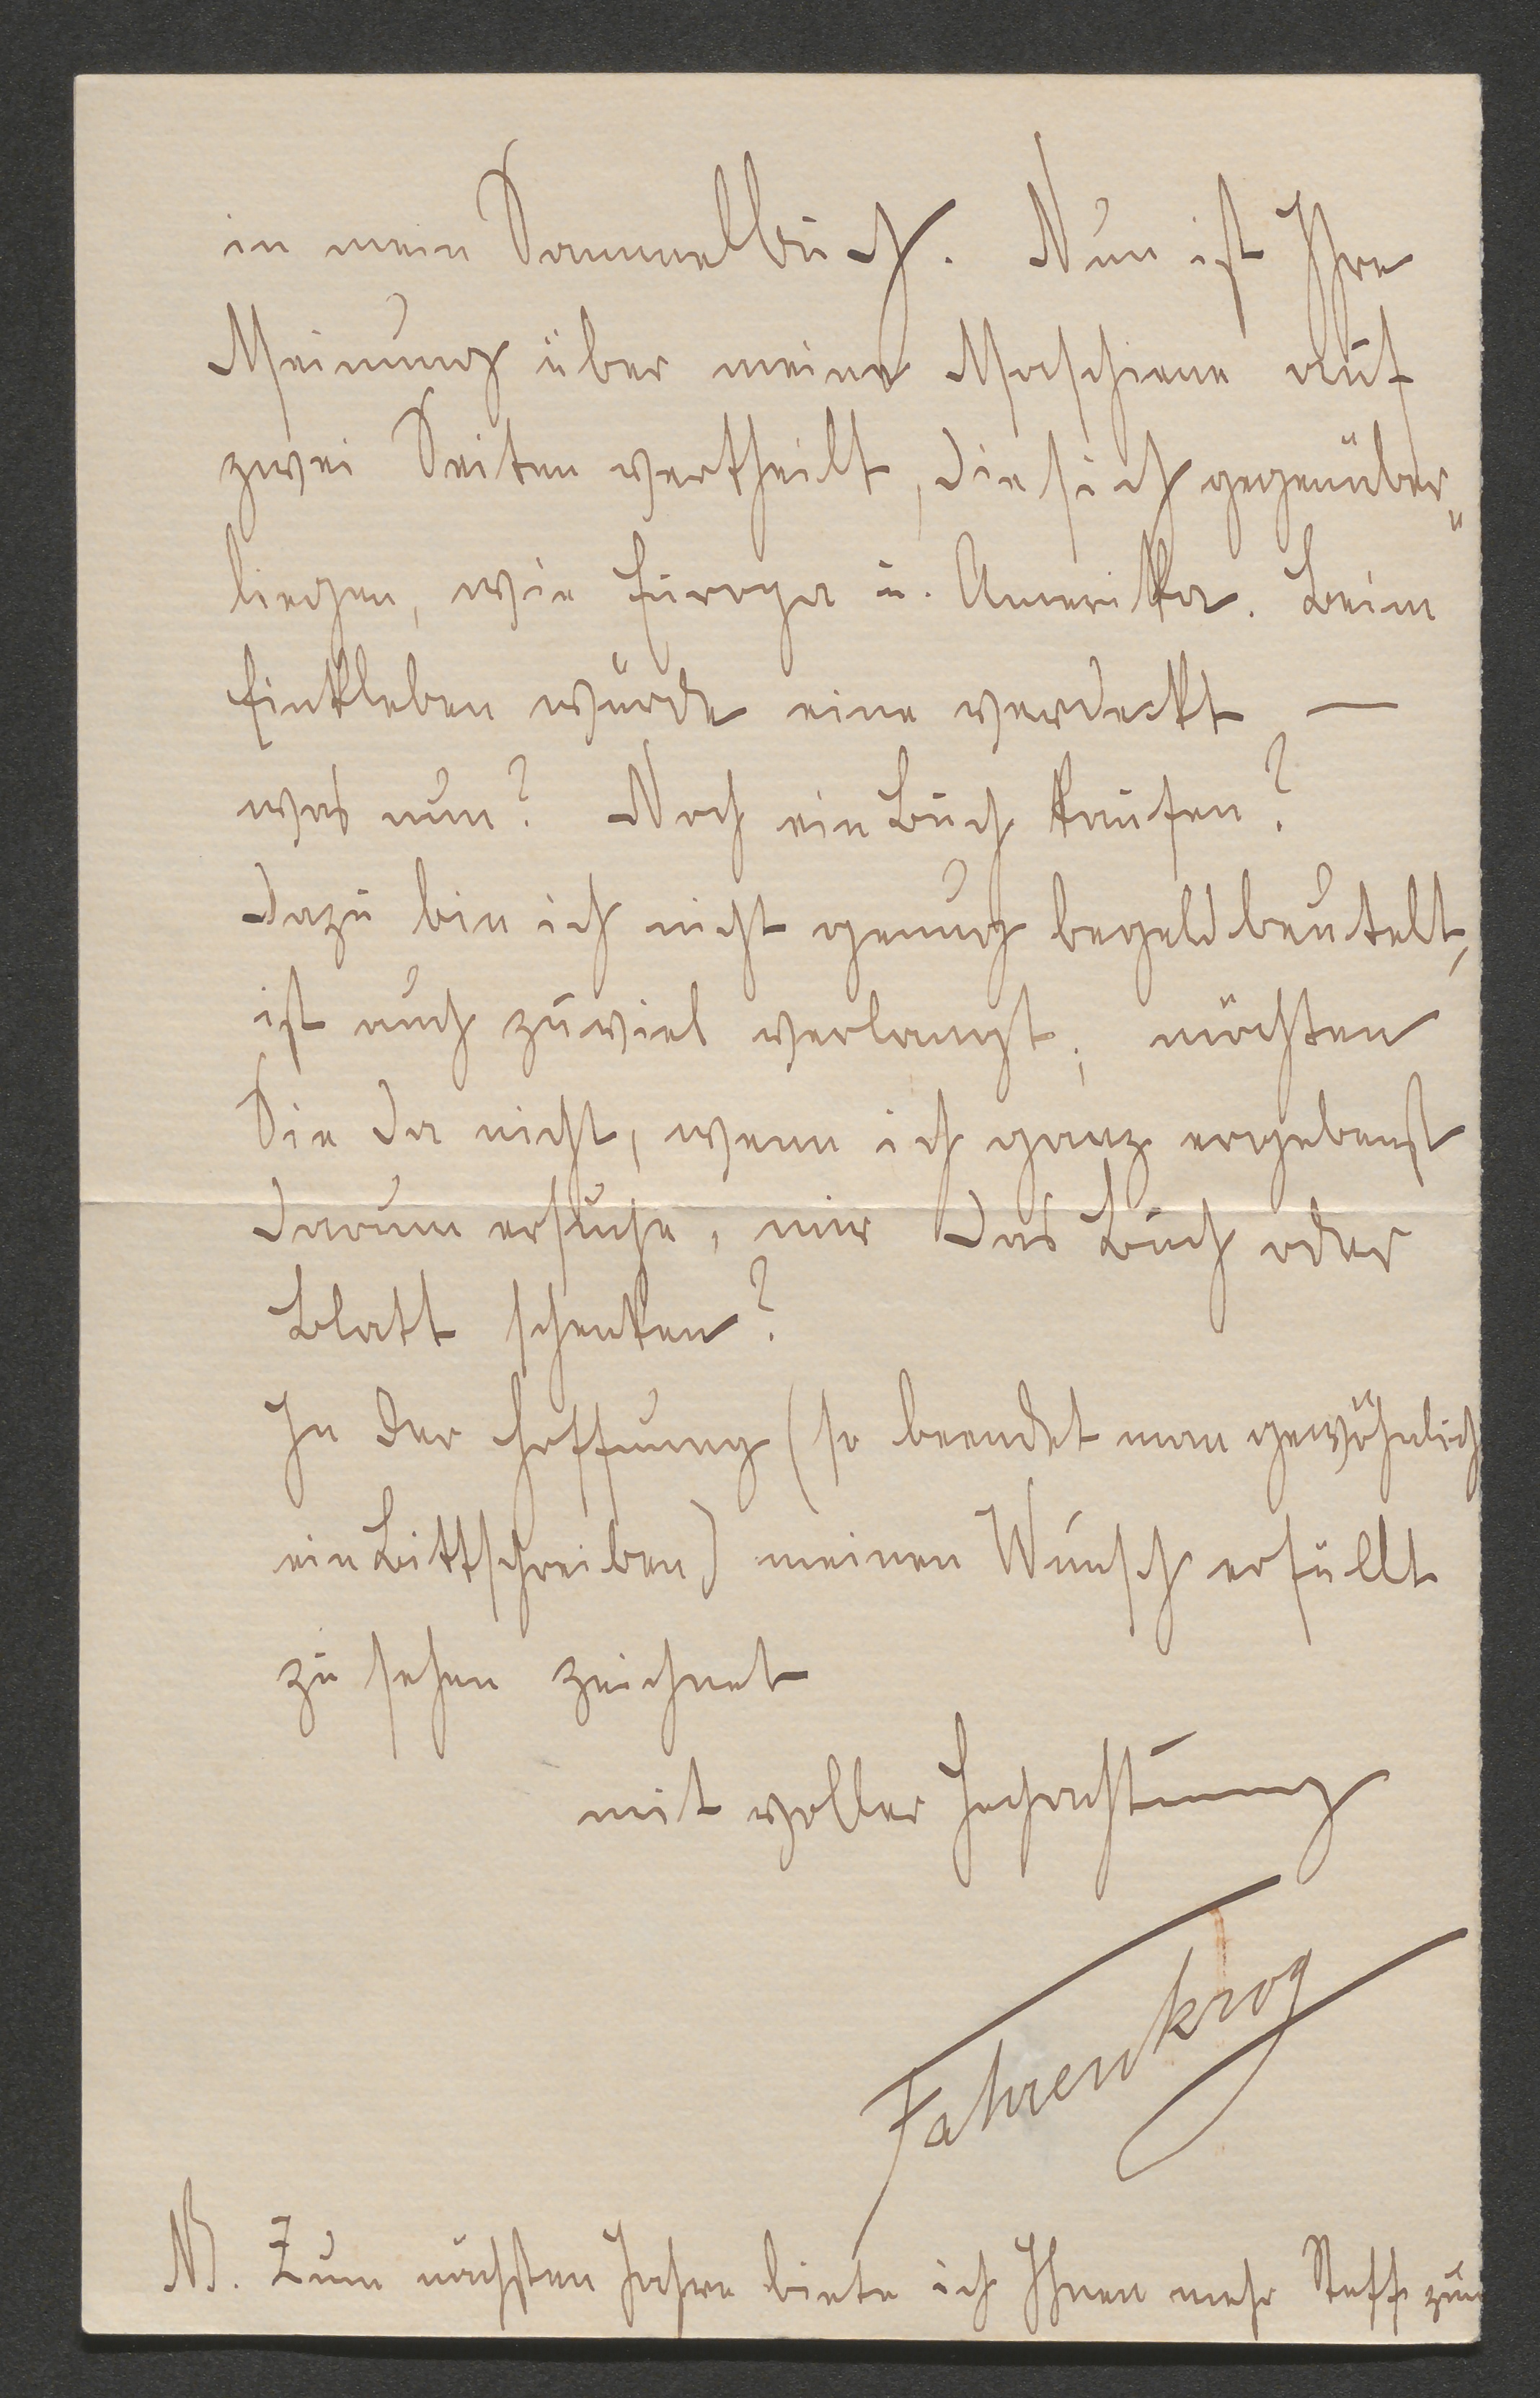 in mein Sammelbuch. Nun ist Ihre
Meinung über meine Maschiene auf
zwei Seiten vertheilt, die sich gegenüber„
liegen, wie Europa u. Amerika. Beim
Einkleben würde eine verdeckt —
was nun? Noch ein Buch kaufen?
Dazu bin ich nicht genug begeldbeutelt,
ist auch zuviel verlangt; möchten
Sie da nicht, wenn ich ganz ergebenst
darum ersuche, mir das Buch oder
Blatt schenken?
In der Hoffnung (so beendet man gewöhnlich
ein Bittschreiben) meinen Wunsch erfüllt
zu sehen zeichnet
mit voller Hochachtung
Fahrenkrog
NB. Zum nächsten Jahre biete ich Ihnen mehr Stoff zum